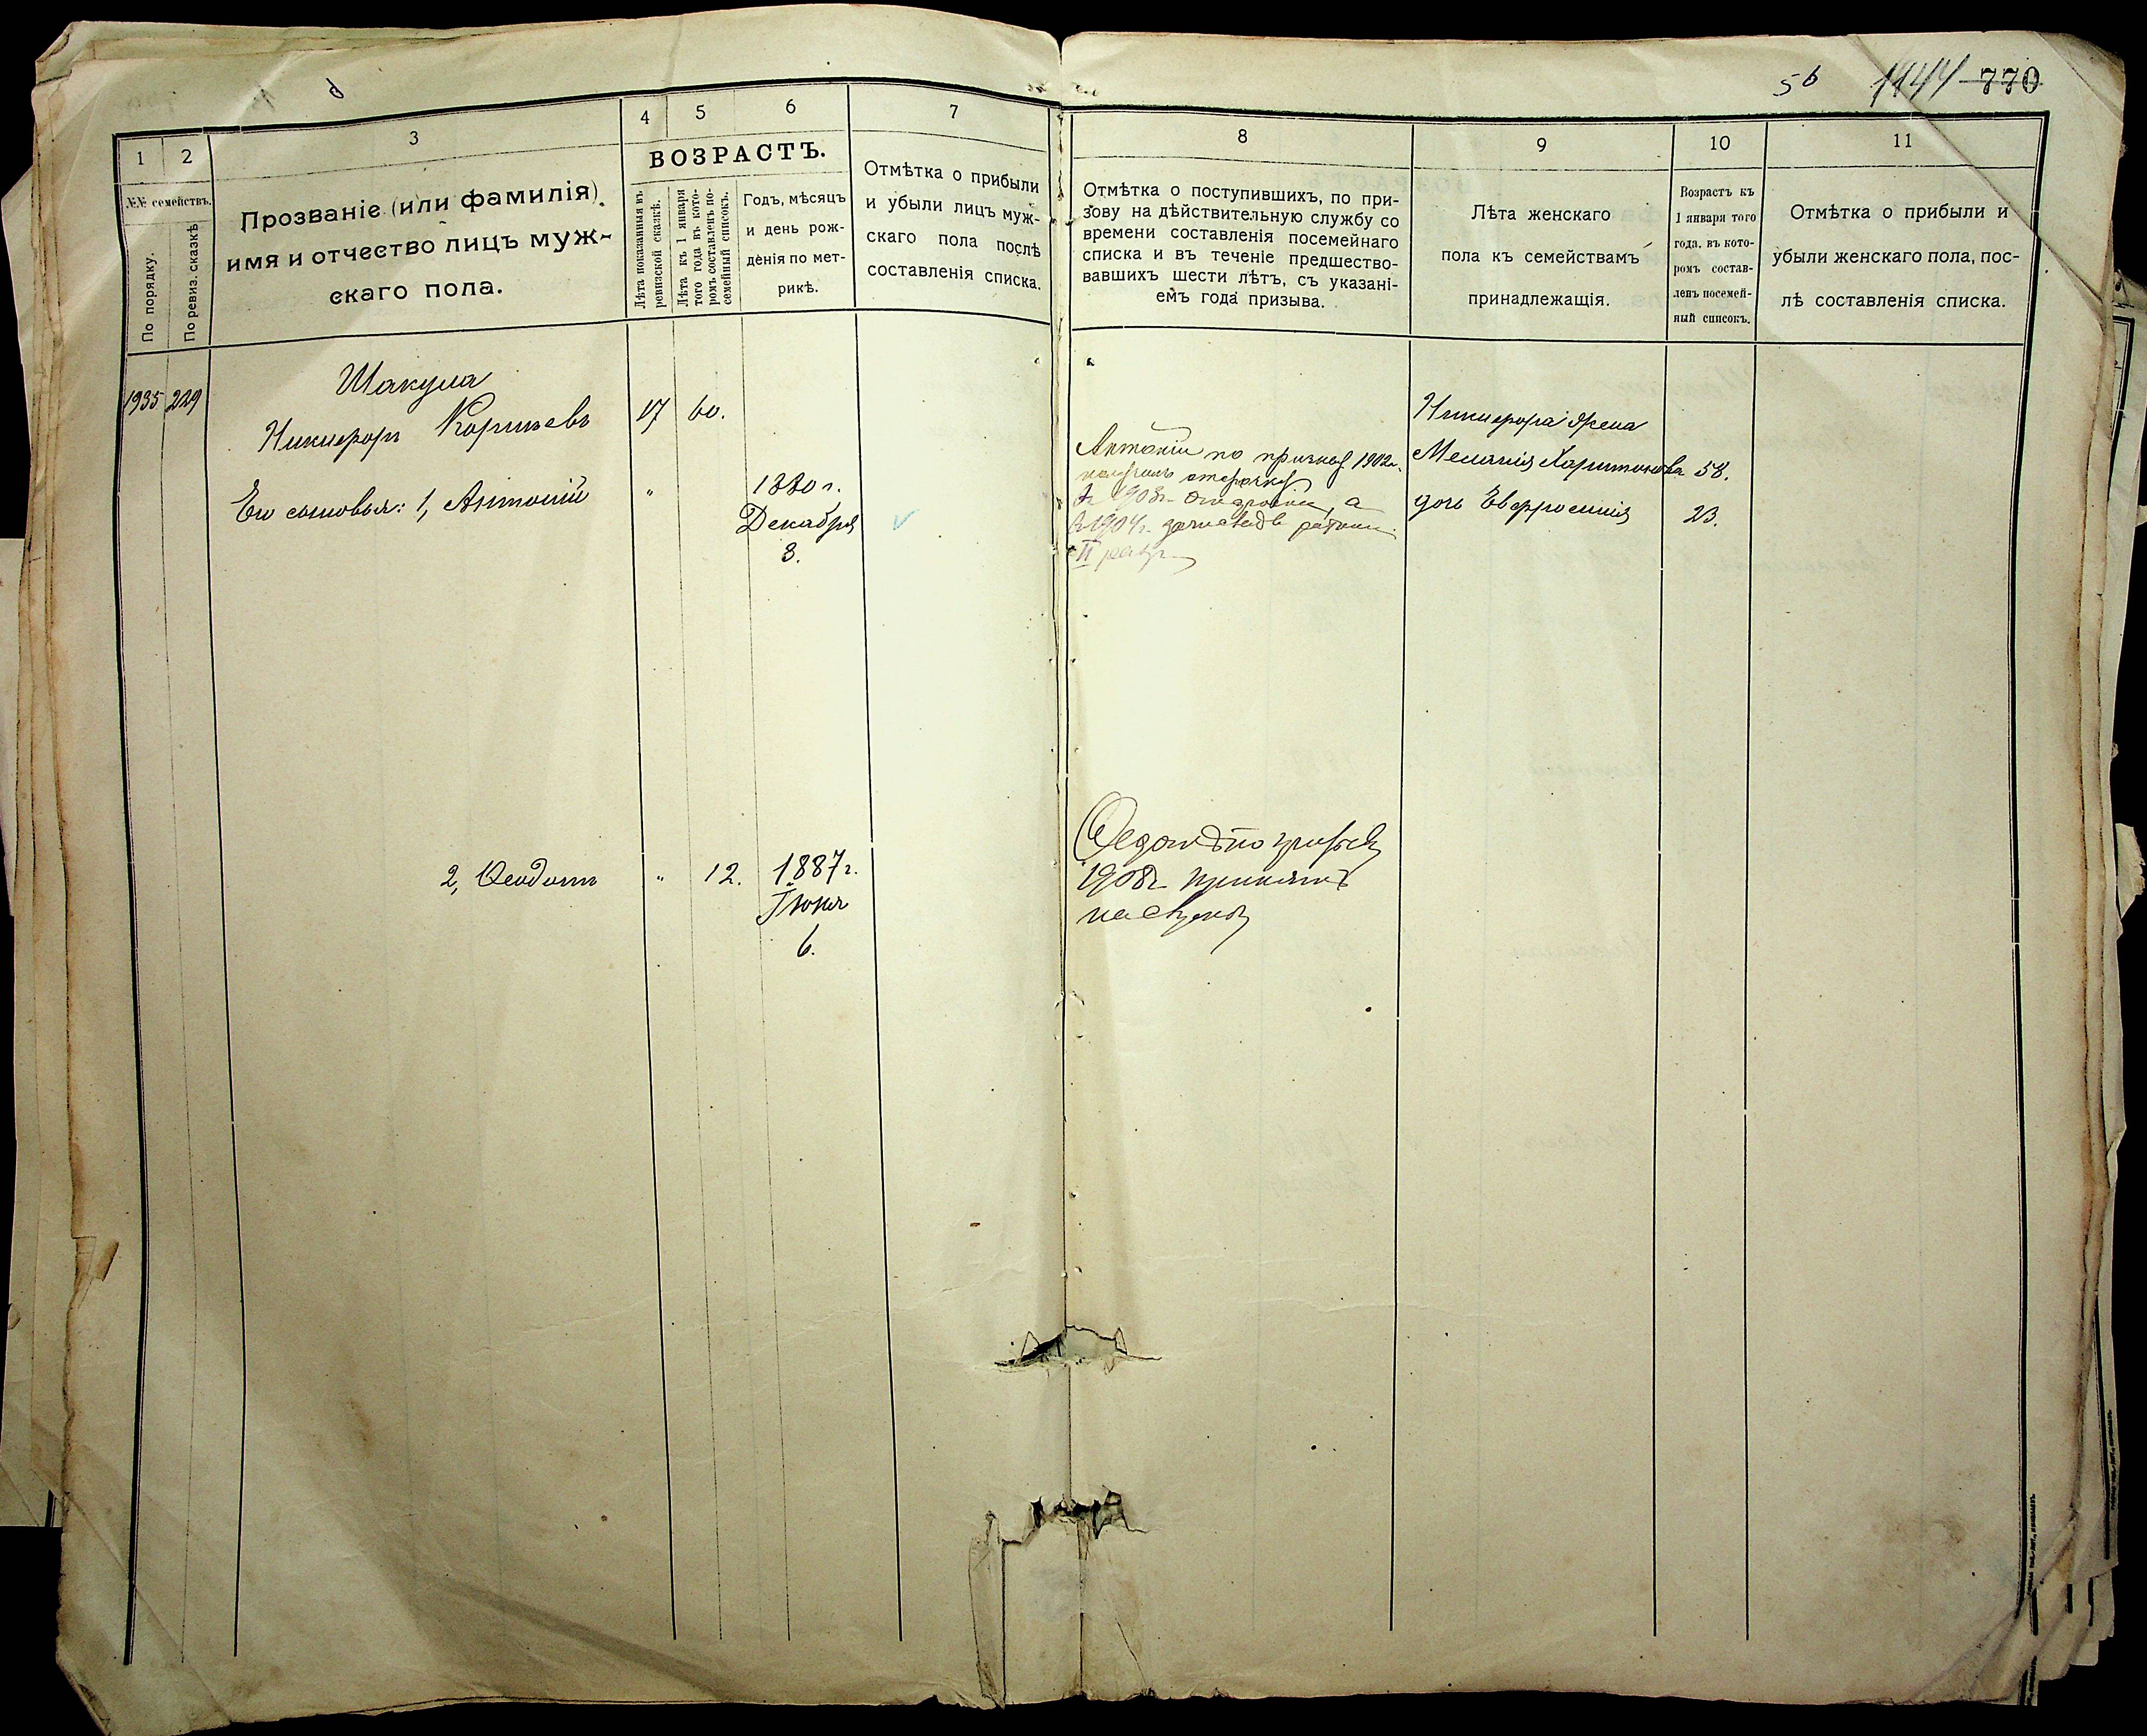 56 1144 770
1 2 3 4 5 6 7
№№ семействъ.
По порядку.
По ревиз. сказкѣ
Прозваніе (или фамилія),
имя и отчество лицъ муж-
скаго пола.
ВОЗРАСТЪ.
Лѣта показанныя въ
ревизской сказкѣ.
Лѣта къ 1 января
того года въ кото-
ромъ составленъ по-
семейный списокъ.
Годъ, мѣсяцъ
и день рож-
денія по мет-
рикѣ.
Отмѣтка о прибыли
и убыли лицъ муж-
скаго пола послѣ
составленія списка.
8 9 10 11
Отмѣтка о поступившихъ, по при-
зову на дѣйствительную службу со
времени составленія посемейнаго
списка и въ теченіе предшество-
вавшихъ шести лѣтъ, съ указані-
емъ года призыва.
Лѣта женскаго
пола къ семействамъ
принадлежащія.
Возрастъ къ
1 января того
года, въ кото-
ромъ состав-
ленъ посемей-
ный списокъ.
Отмѣтка о прибыли и
убыли женскаго пола, пос-
лѣ составленія списка.
1935 229 Шакула
Никифоръ 17 60.
Его сыновья: 1, Антоній " 1880 г.
Декабря
8.
Антоній по призыву 1902 г.
получилъ отсрочку
а
въ 1904 г.
II разр.
Никифора жена
Меланія Харитонова 58.
дочь Евфросинія 23.
2, Ѳеодотъ " 12. 1887 г.
Іюня
6.
Ѳедотъ по призыву
1908 г. принятъ
на службу